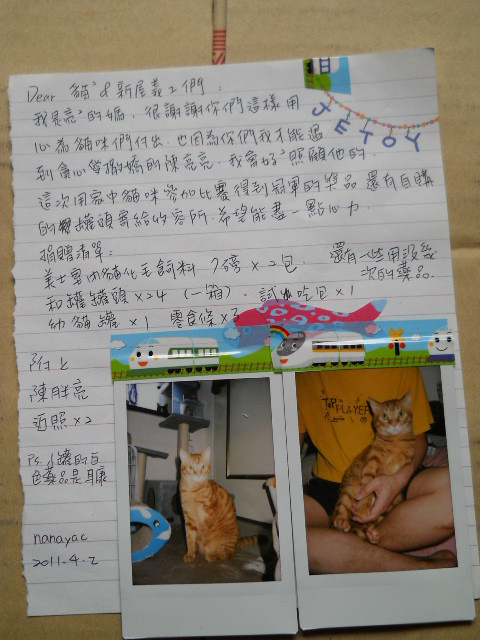 Dear 貓²&新屋義工們:
我是亮²的媽,很謝謝你們這樣用
心為貓咪們付出,也因為你們我才能遇
到貪心等撒嬌的陳亮亮,我會好²照顧他的.
這次用家中貓咪參加比賽得到冠軍的獎品 還有自購
的罐頭寄給收容所,希望能盡一點心力.
捐贈清單:
美士室內貓化毛飼料 7磅×2包. 還有一些用沒幾
次的藥品.
和罐罐頭×24 (一箱). 試吃包×1
幼貓罐×1 零食條×3
附上
陳胖亮
近照×2
Ps 罐的白
色藥品是耳康
nanayac
2011.4.2
JETOY
TOP PLAYER